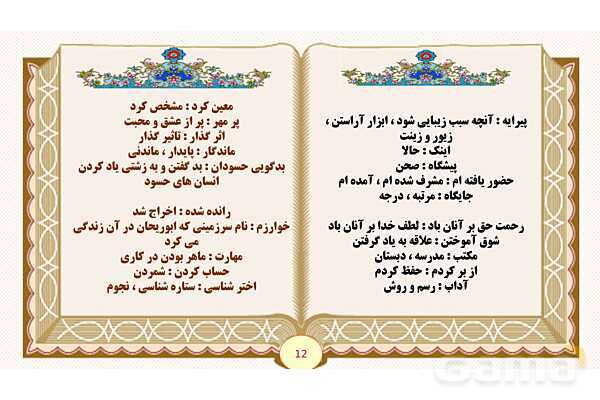 پیرایه : آنچه سبب زیبایی شود ، ابزار آراستن ،
زیور و زینت
اینک : حالا
پیشگاه : صحن
حضور یافته ام : مشرف شده ام ، آمده ام
جایگاه : مرتبه ، درجه
رحمت حق بر آنان باد : لطف خدا بر آنان باد
شوق آموختن : علاقه به یاد گرفتن
مکتب : مدرسه ، دبستان
از بر کردم : حفظ کردم
آداب : رسم و روش
معین کرد : مشخص کرد
پر مهر : پر از عشق و محبت
اثر گذار : تاثیر گذار
ماندگار : پایدار ، ماندنی
بدگویی حسودان : بد گفتن و به زشتی یاد کردن
انسان های حسود
رانده شده : اخراج شد
خوارزم : نام سرزمینی که ابوریحان در آن زندگی
می کرد
مهارت : ماهر بودن در کاری
حساب کردن : شمردن
اختر شناسی : ستاره شناسی ، نجوم
12
Gama